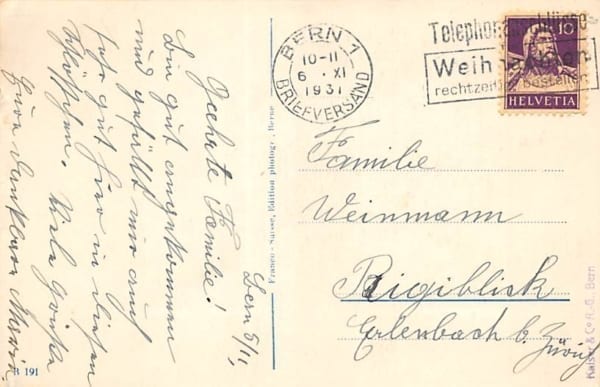 Bern 5/11,
Geehrte Familie!
Bin gut angekommen
und gefällt mir auch
sehr gut hier in diesem
Viele Grüsse
Eure dankbare
B 191
Franco-Suisse, Edition photogr., Berne
BERN 1
10-11
6. XI
1931
BRIEFVERSAND
Telephonanschlüsse
Weihnachten
rechtzeitig bestellen
10
HELVETIA
Familie
Weinmann
Rigiblick
Erlenbach b. Zürich
Kaiser & Co A.-G., Bern